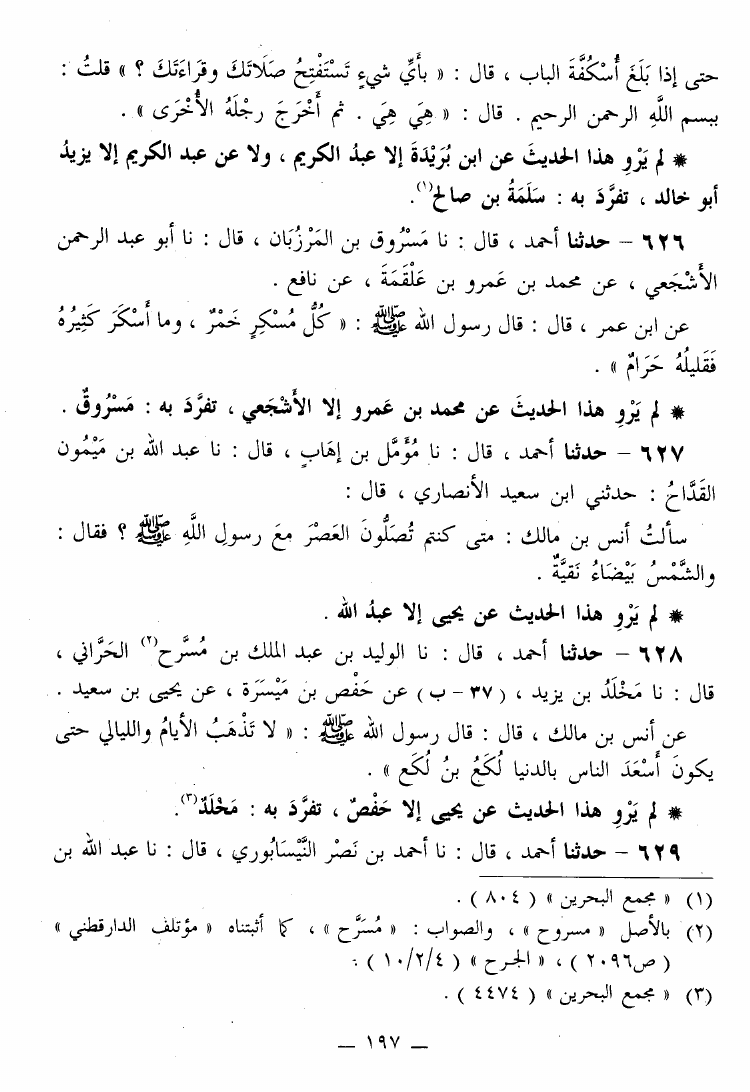 حتى إذا بَلَغَ أُسْكُفَّةَ الباب ، قال : « بأَيِّ شيءٍ تَسْتَفْتِحُ صَلَاتَكَ وقراءَتَكَ ؟ » قلتُ :
ببسم اللَّهِ الرحمن الرحيم . قال : « هِيَ هِيَ . ثم أَخْرَجَ رِجْلَهُ الأُخْرَى » .
* لم يَرْوِ هذا الحديثَ عن ابن بُرَيْدَةَ إلا عبدُ الكريم ، ولا عن عبد الكريم إلا يزيدُ
أبو خالد ، تفرَّدَ به : سَلَمَةُ بن صالح(١).
٦٢٦ – حدثنا أحمد ، قال : نا مَسْرُوق بن المَرْزُبَان ، قال : نا أبو عبد الرحمن
الأَشْجَعي ، عن محمد بن عَمرو بن عَلْقمَةَ ، عن نافع .
عن ابن عمر ، قال : قال رسول الله ﷺ : « كُلُّ مُسْكِرٍ خَمْرٌ ، وما أَسْكَرَ كَثِيرُهُ
فَقَليلُهُ حَرَامٌ » .
* لم يَرْوِ هذا الحديثَ عن محمد بن عَمرو إلا الأَشْجَعي ، تفرَّدَ به : مَسْرُوقٌ .
٦٢٧ – حدثنا أحمد ، قال : نا مُؤَمَّل بن إهَابٍ ، قال : نا عبد الله بن مَيْمُون
القَدَّاحُ : حدثني ابن سعيد الأنصاري ، قال :
سألتُ أنس بن مالك : متى كنتم تُصَلُّونَ العَصْرَ مَعَ رسولِ اللَّهِ ﷺ ؟ فقال :
والشَّمْسُ بَيْضَاءُ نَقيَّةٌ .
* لم يَرْوِ هذا الحديث عن يحيى إلا عبدُ الله .
٦٢٨ – حدثنا أحمد ، قال : نا الوليد بن عبد الملك بن مُسَّرح(٢) الحَرَّاني ،
قال : نا مَخْلَدُ بن يزيد ، (٣٧ – ب) عن حَفْص بن مَيْسَرَة ، عن يحيى بن سعيد .
عن أنس بن مالك ، قال : قال رسول الله ﷺ : « لا تَذْهَبُ الأيامُ والليالي حتى
يكونَ أَسْعَدَ الناس بالدنيا لُكَعُ بنُ لُكَع » .
* لم يَرْوِ هذا الحديث عن يحيى إلا حَفْصٌ ، تفرَّدَ به : مَخْلَدٌ(٣).
٦٢٩ – حدثنا أحمد ، قال : نا أحمد بن نَصْر النَّيْسَابُوري ، قال : نا عبد الله بن
(١) « مجمع البحرين » ( ٨٠٤ ) .
(٢) بالأصل « مسروح » ، والصواب : « مُسَرَّح » ، كما أثبتناه « مؤتلف الدارقطني »
( ص٢٠٩٦ ) ، « الجرح » ( ١٠/٢/٤ ) .
(٣) « مجمع البحرين » ( ٤٤٧٤ ) .
– ١٩٧ –